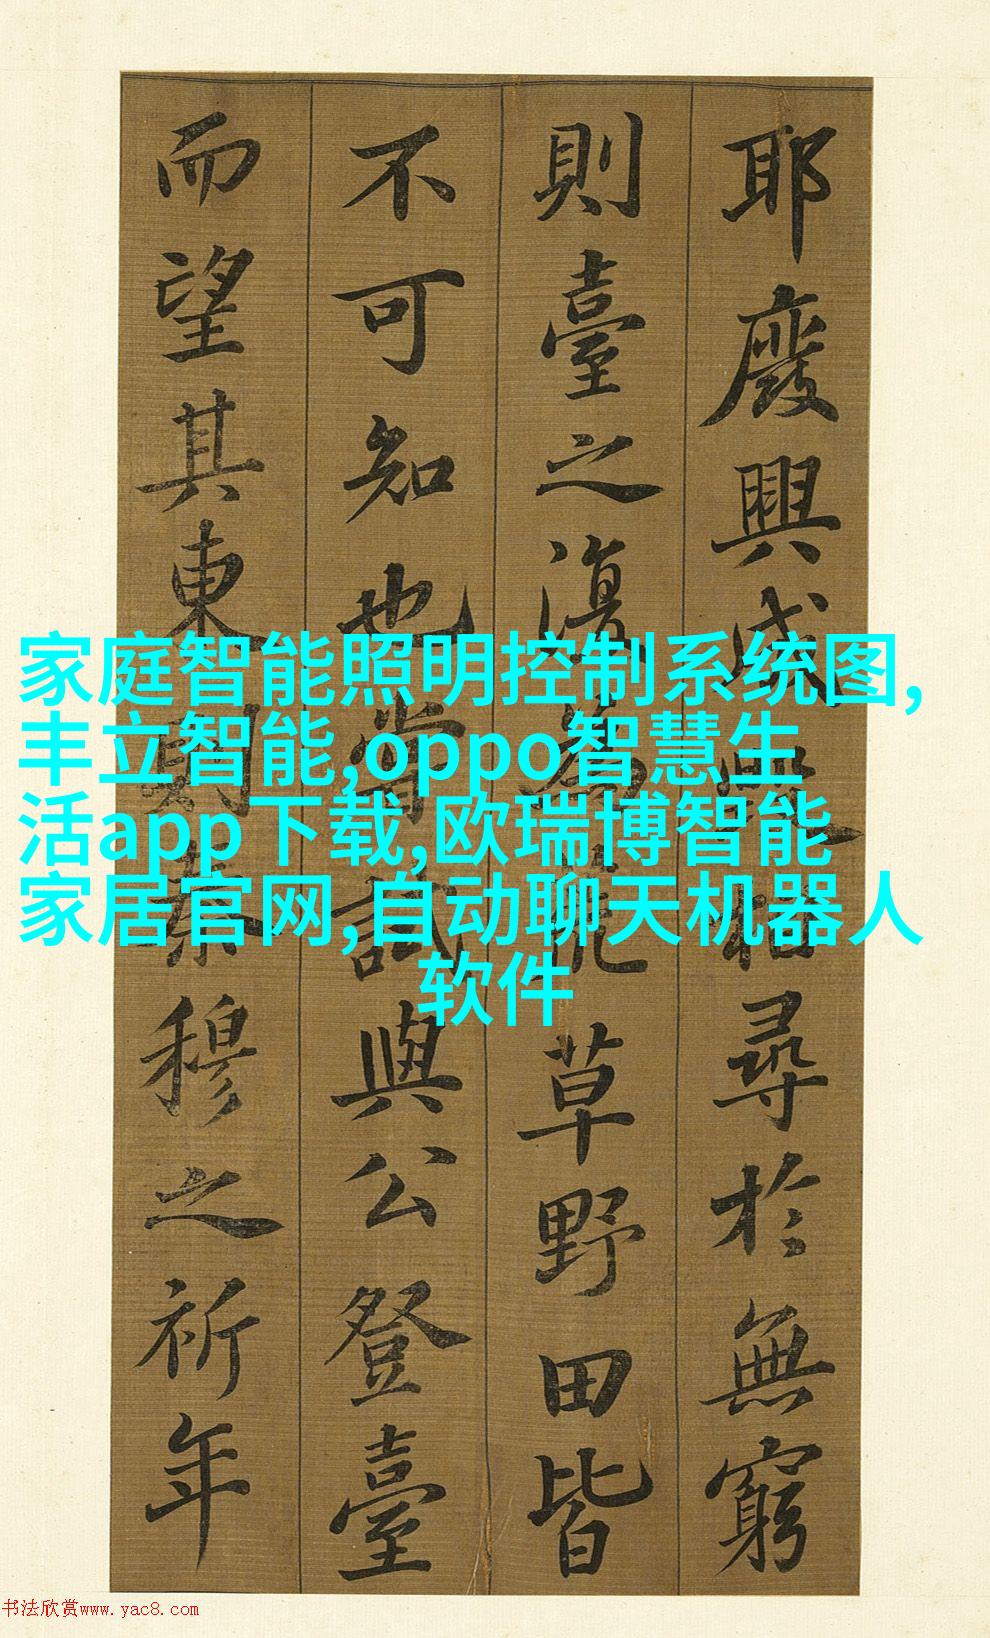 耶廢興成毀相尋於無窮
則臺之復為荒草野田皆
不可知也嘗試與公登臺
而望其東則秦穆之祈年
家庭智能照明控制系统图,
丰立智能,oppo智慧生
活app下载,欧瑞博智能
家居官网,自动聊天机器人
软件
书法欣赏www.yac8.com